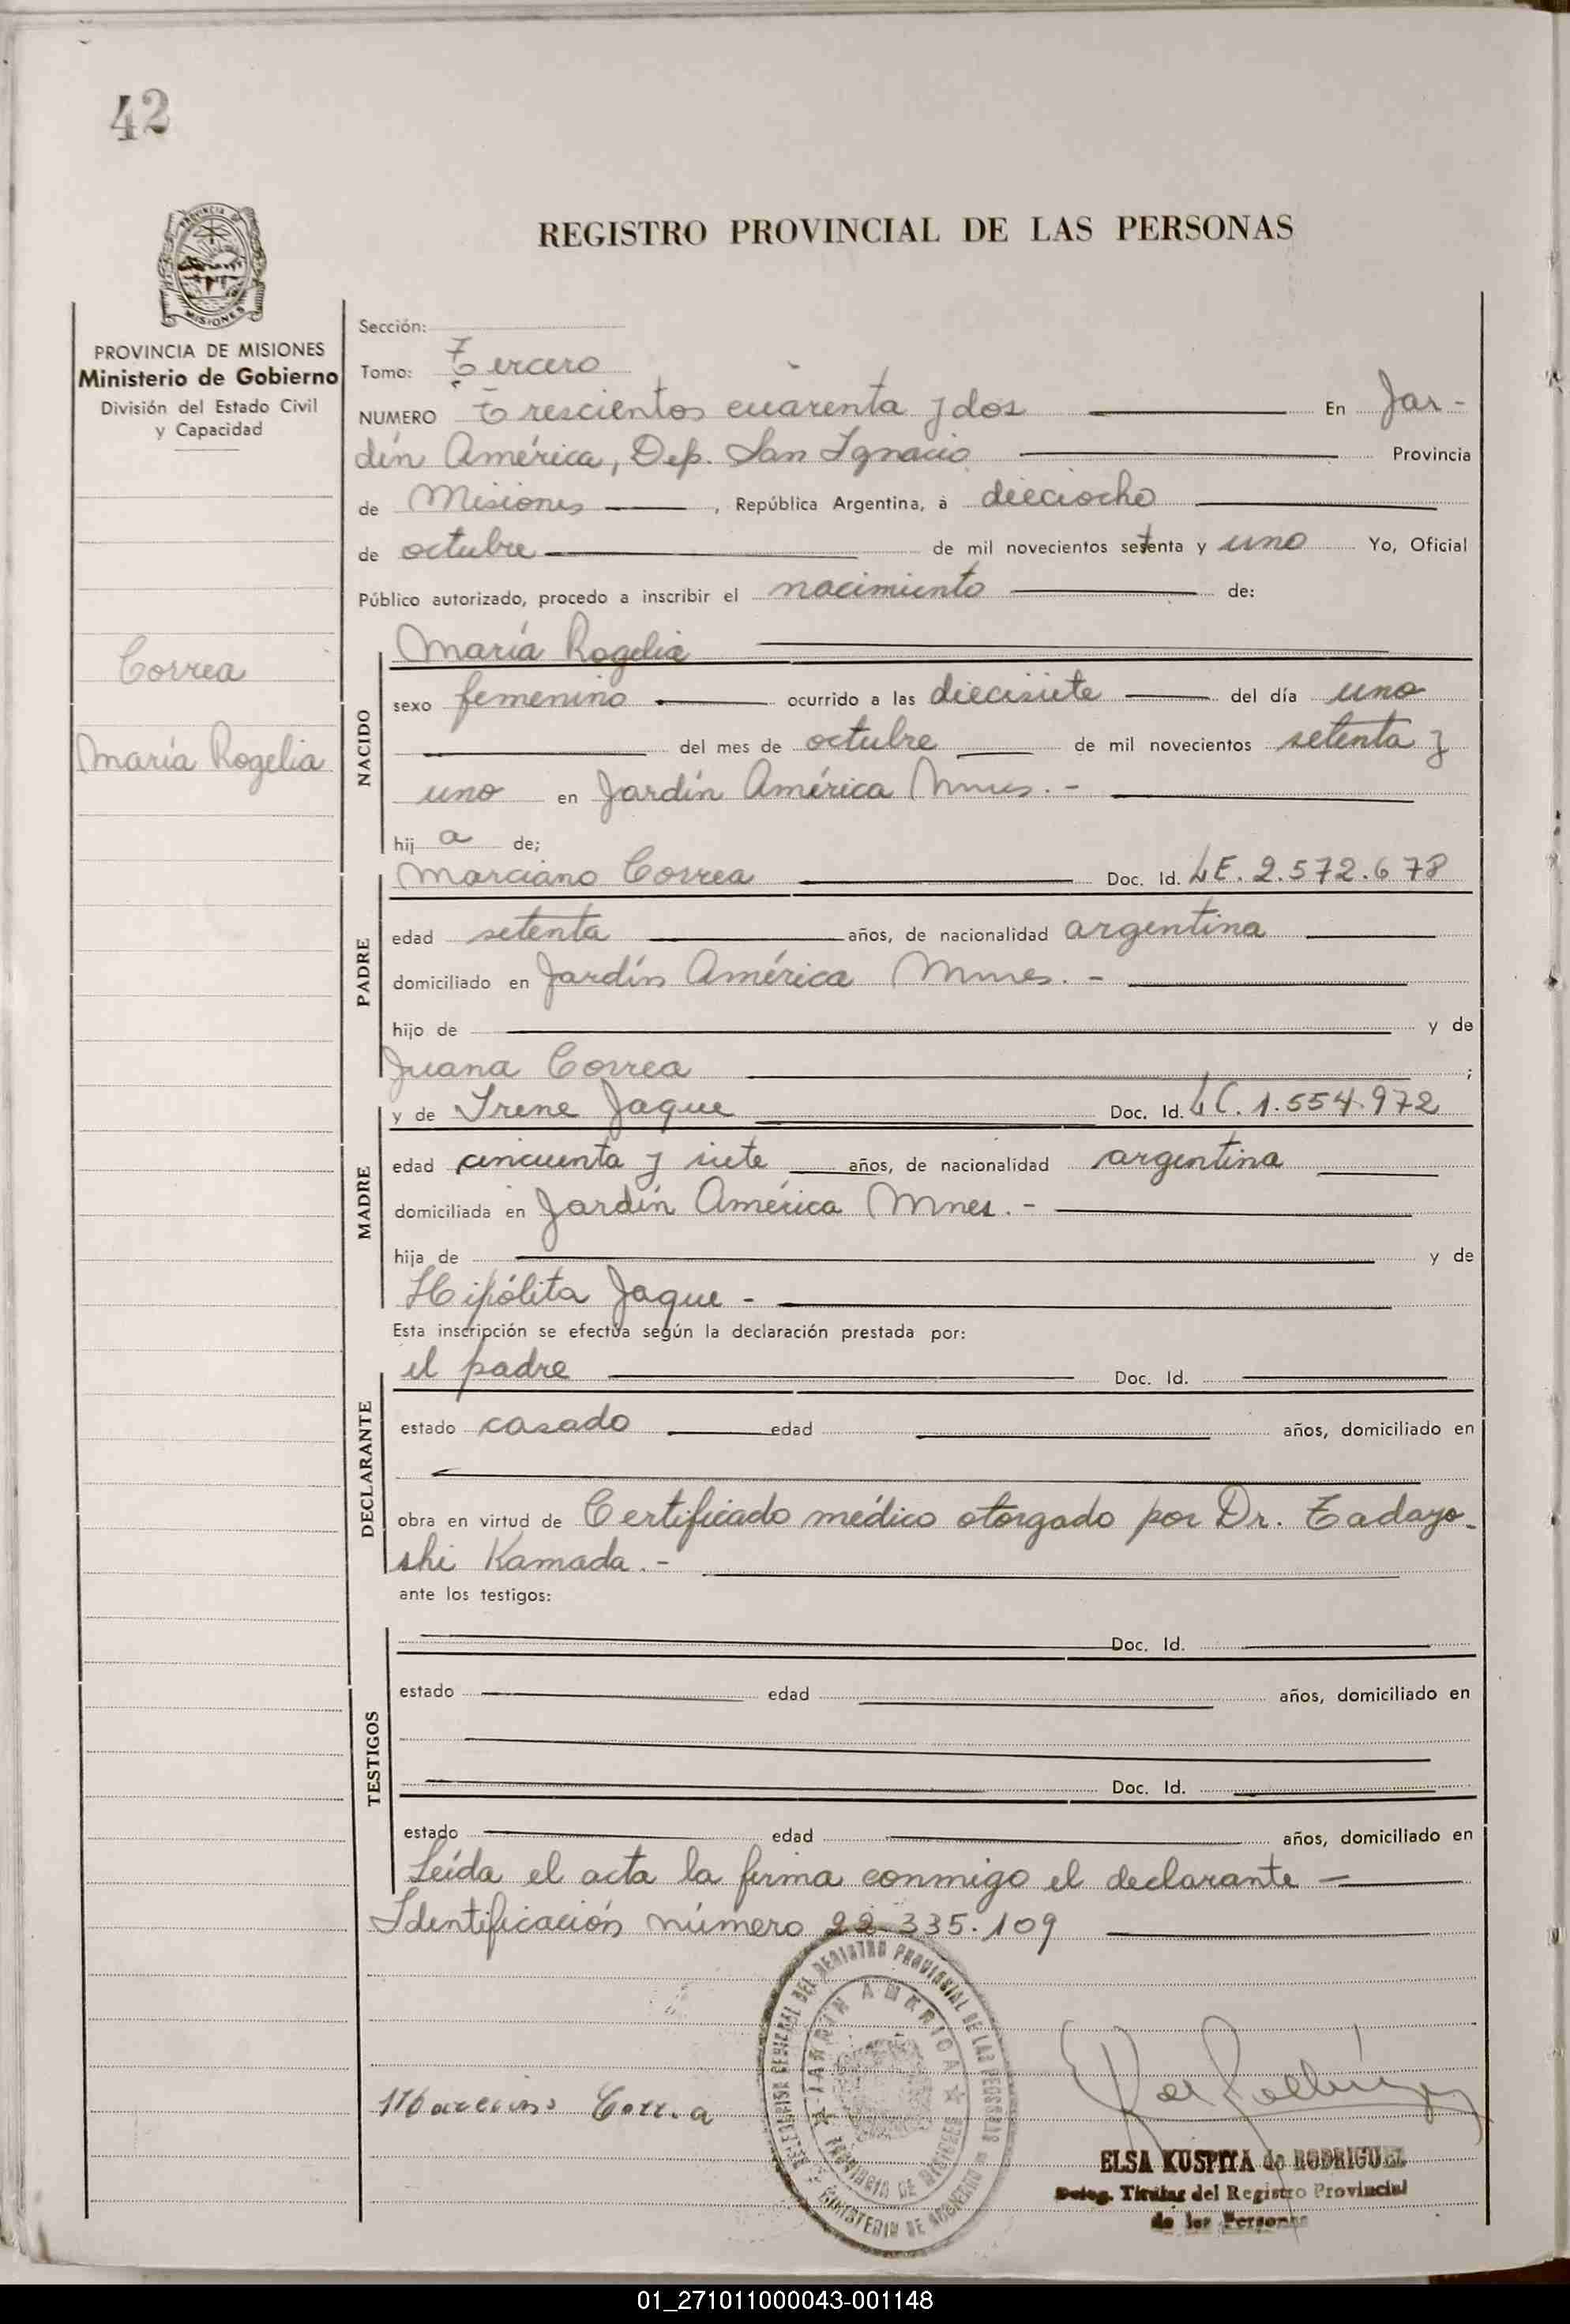 42
PROVINCIA DE
MISIONES
REGISTRO PROVINCIAL DE LAS PERSONAS
PROVINCIA DE MISIONES
Ministerio de Gobierno
División del Estado Civil
y Capacidad
Correa
María Rogelia
Sección:
Tomo: Tercero
NUMERO Trescientos cuarenta y dos En Jar-
dín América, Dep. San Ignacio Provincia
de Misiones, República Argentina, à dieciocho
de octubre de mil novecientos setenta y uno Yo, Oficial
Público autorizado, procedo a inscribir el nacimiento de:
NACIDO
María Rogelia
sexo femenino ocurrido a las diecisiete del día uno
del mes de octubre de mil novecientos setenta y
uno en Jardín América Mnes. -
hij a de;
PADRE
Marciano Correa Doc. Id. LE. 2.572.678
edad setenta años, de nacionalidad argentina
domiciliado en Jardín América Mnes. -
hijo de y de
Juana Correa ;
MADRE
y de Irene Jaque Doc. Id. LC. 1.554.972
edad cincuenta y siete años, de nacionalidad argentina
domiciliada en Jardín América Mnes. -
hija de y de
Hipólita Jaque -
Esta inscripción se efectúa según la declaración prestada por:
DECLARANTE
el padre Doc. Id.
estado casado edad años, domiciliado en
obra en virtud de Certificado médico otorgado por Dr. Tadayo-
shi Kamada. -
ante los testigos:
TESTIGOS
Doc. Id.
estado edad años, domiciliado en
Doc. Id.
estado edad años, domiciliado en
Leída el acta la firma conmigo el declarante -
Identificación número 22.335.109
DELEGACION GENERAL DEL REGISTRO PROVINCIAL DE LAS PERSONAS
JARDIN AMERICA
PROVINCIA DE MISIONES
MINISTERIO DE GOBIERNO
Marciano Correa
ELSA KUSPITA de RODRIGUEZ
Deleg. Titular del Registro Provincial
de las Personas
01_271011000043-001148